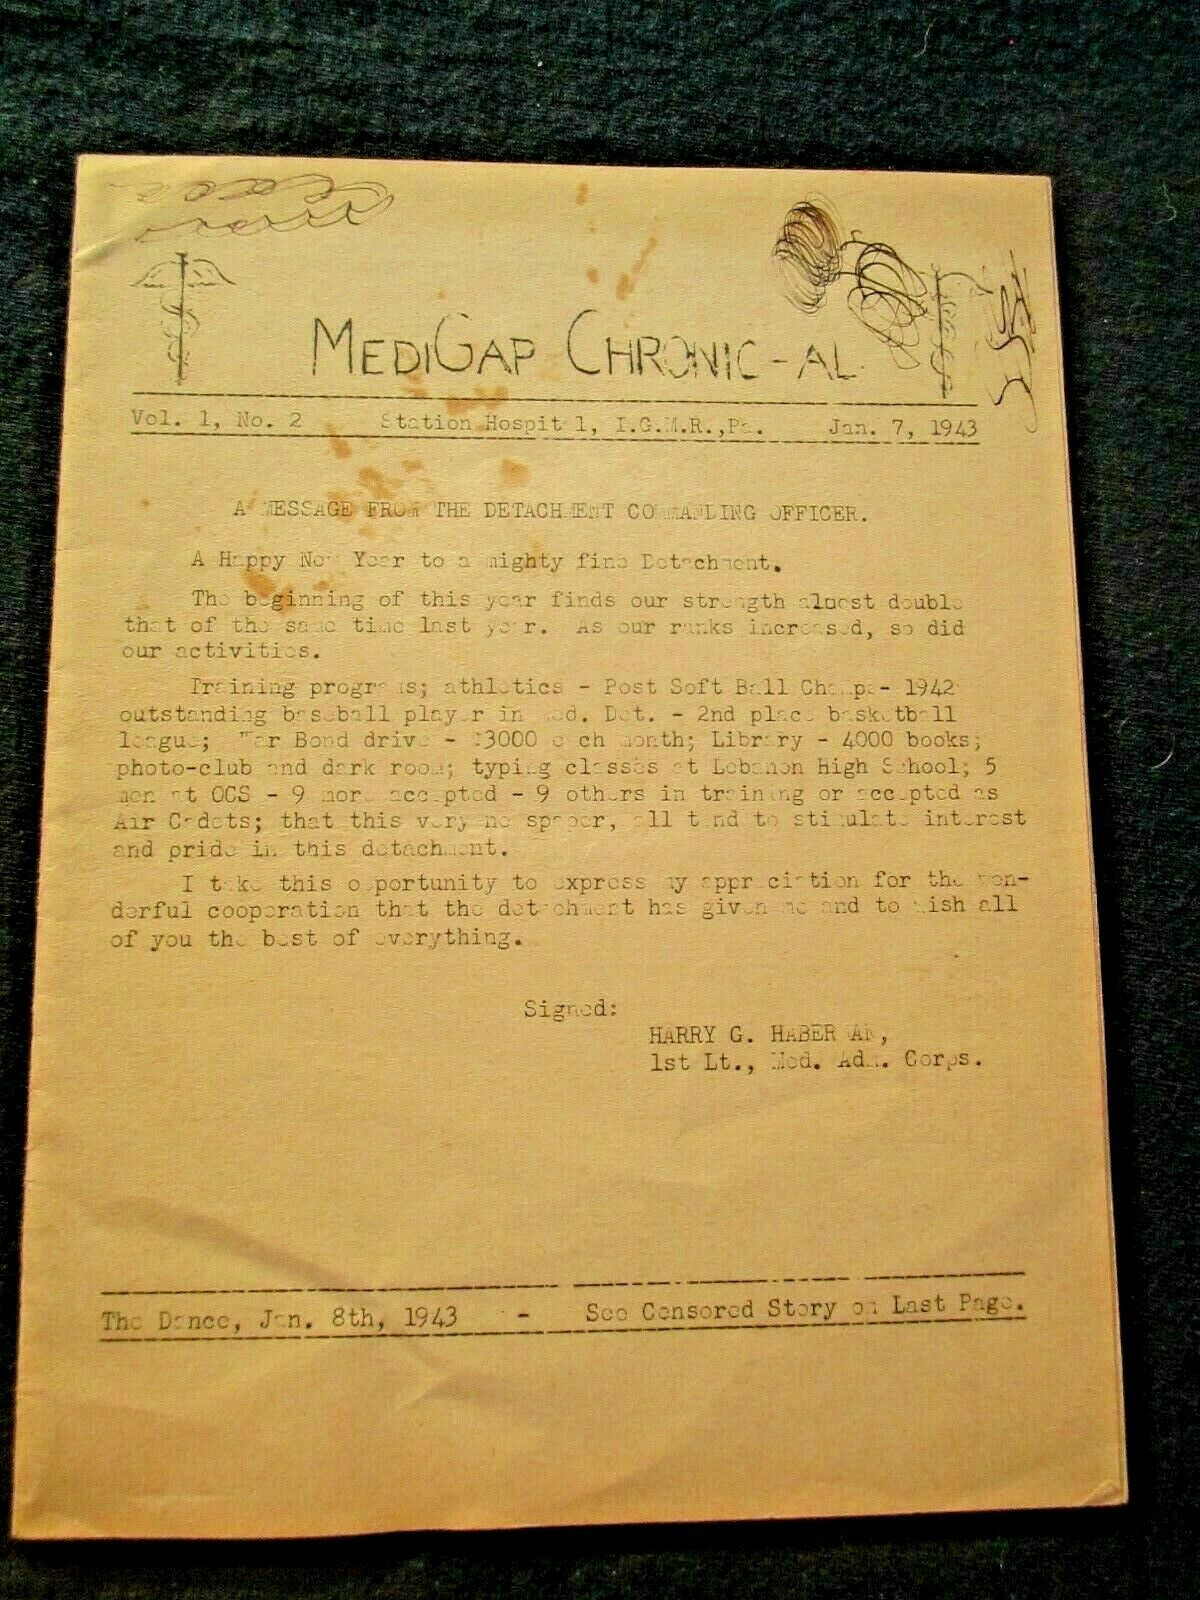 MEDIGAP CHRONIC-AL
Vol. 1, No. 2 Station Hospital, I.G.M.R.,Pa. Jan. 7, 1943
A MESSAGE FROM THE DETACHMENT COMMANDING OFFICER.
A Happy New Year to a mighty fine Detachment.
The beginning of this year finds our strength almost double
that of the same time last year. As our ranks increased, so did
our activities.
Training programs; athletics - Post Soft Ball Champs- 1942
outstanding baseball player in Med. Det. - 2nd place basketball
league; War Bond drive - $3000 each month; Library - 4000 books;
photo-club and dark room; typing classes at Lebanon High School; 5
men at OCS - 9 more accepted - 9 others in training or accepted as
Air Cadets; that this very newspaper, all tend to stimulate interest
and pride in this detachment.
I take this opportunity to express my appreciation for the won-
derful cooperation that the detachment has given me and to wish all
of you the best of everything.
Signed:
HARRY G. HABERMAN,
1st Lt., Med. Adm. Corps.
The Dance, Jan. 8th, 1943 - See Censored Story on Last Page.